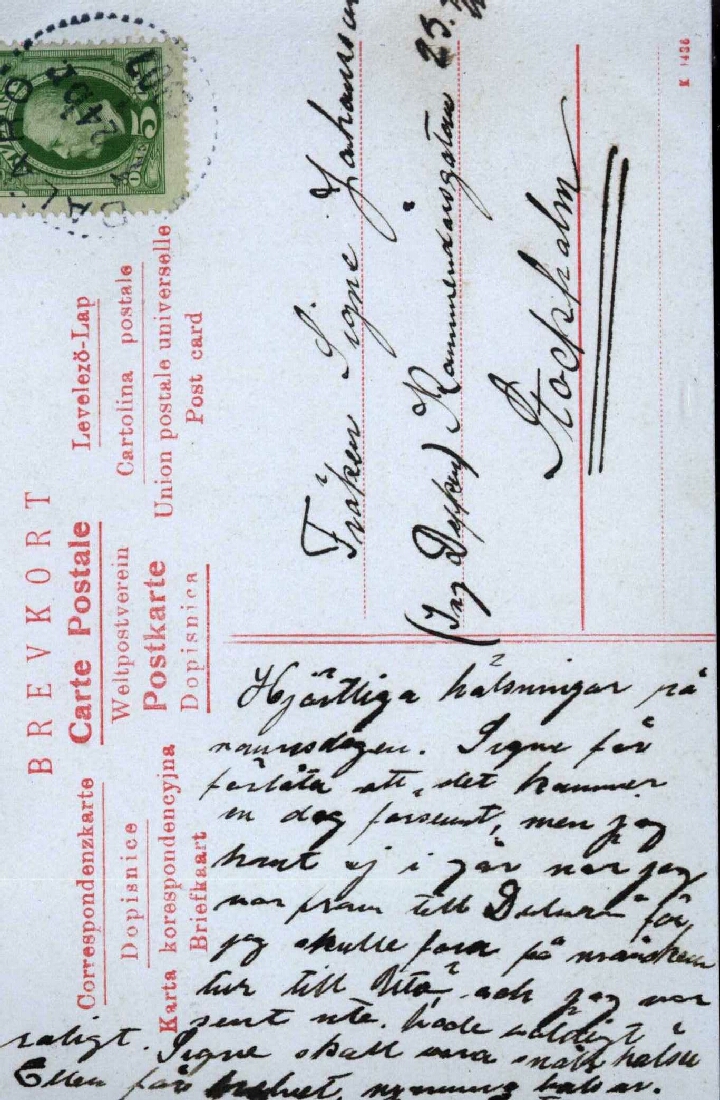 BREVKORT
Carte Postale
Correspondenzkarte
Levelező-Lap
Dopisnice
Weltpostverein
Cartolina postale
Karta korespondencyjna
Postkarte
Union postale universelle
Briefkaart
Dopisnica
Post card
DALARÖ
K 1436
Fröken Signe Johansson
Kammendörsgatan 25.
Stockholm
Hjärtliga hälsningar på
namnsdagen. Signe får
förlåta att det kommer
en dag försent, men jag
hant ej i går när jag
var fram till Dalarö för
jag skulle fara på månsken
tur till Utö och jag var
sent ute. hade väldigt
roligt. Signe skall vara snäll hälsa
Ellen från